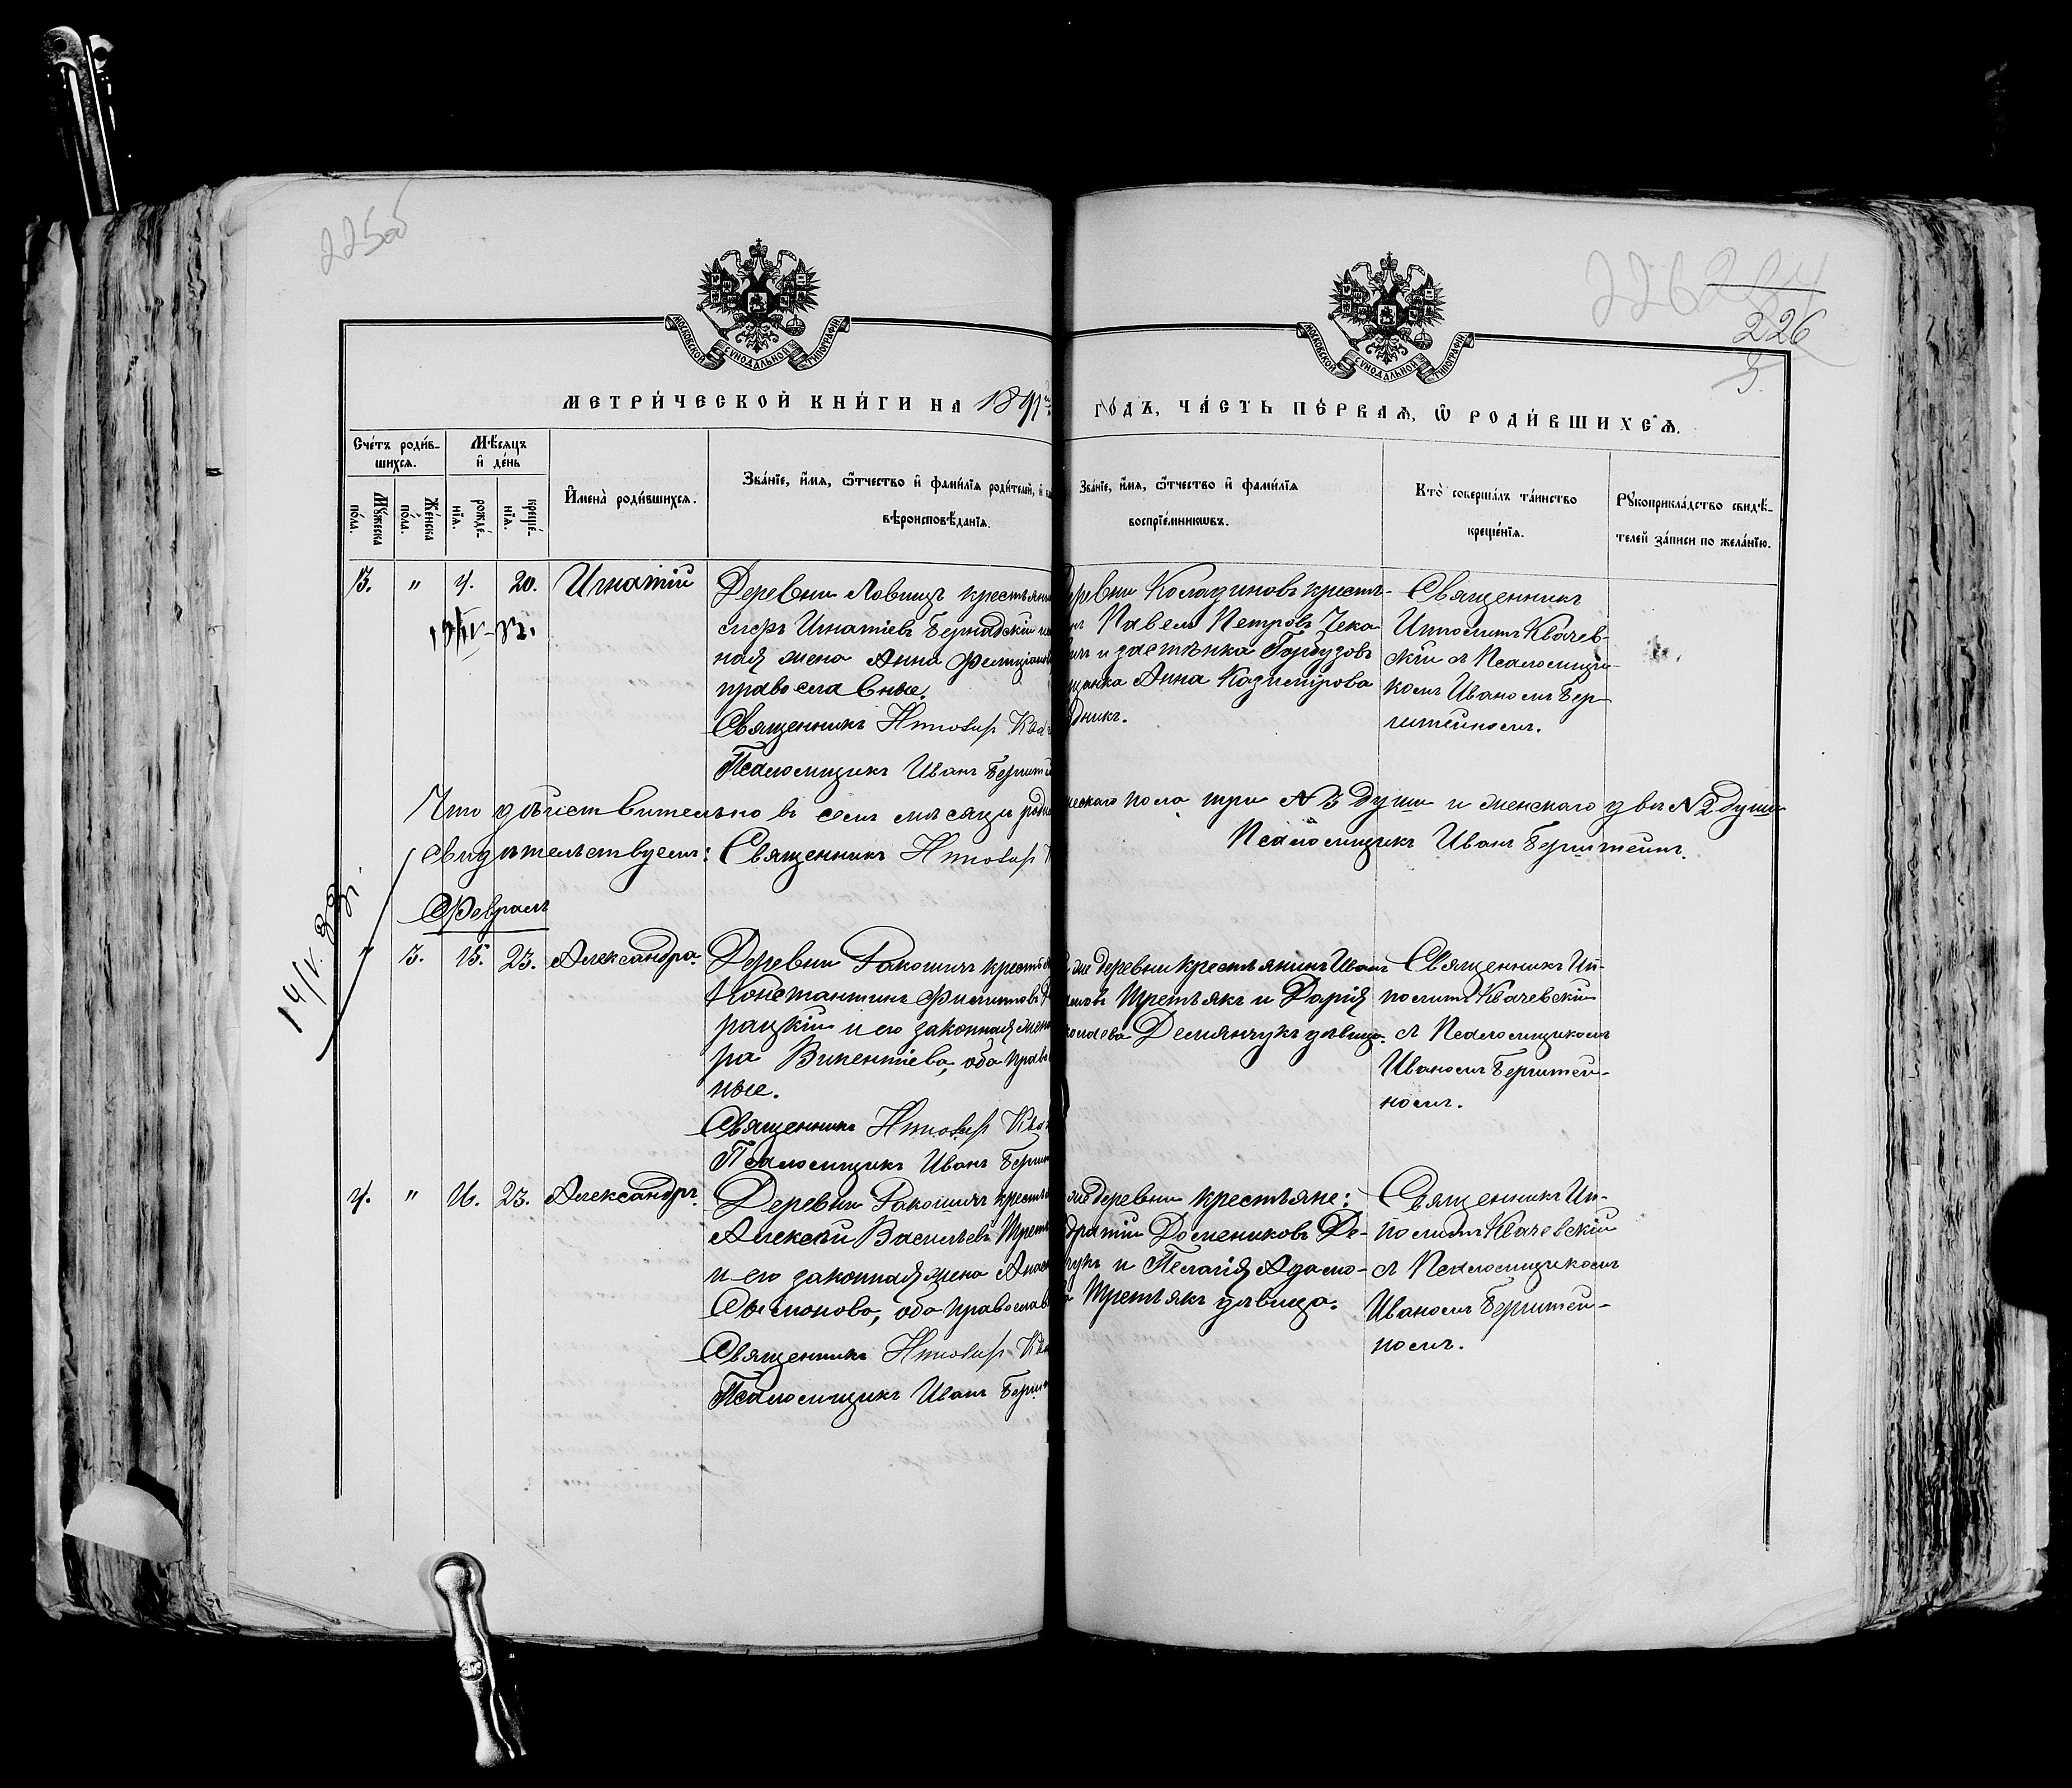 225об
226
226
5.
МОСКОВСКОЙ СѴНОДАЛЬНОЙ ТИПОГРАФІИ
МОСКОВСКОЙ СѴНОДАЛЬНОЙ ТИПОГРАФІИ
МЕТРИ́ЧЕСКОЙ КНИ́ГИ НА 1891й
ГО́ДЪ, ЧА́СТЬ ПЕ́РВАѦ, Ѡ҆ РОДИ́ВШИХСѦ.
Сче́тъ роди́в-
шихсѧ.
Мѣ́сѧцъ
и҆ де́нь
Мꙋ́жеска
по́ла.
Же́нска
по́ла.
рожде́-
нїѧ.
креще́-
нїѧ.
И҆мена̀ роди́вшихсѧ.
Зва́нїе, и҆́мѧ, ѻ҆́тчество и҆ фами́лїѧ роди́телей, и҆
вѣроисповѣ́данїѧ.
Зва́нїе, и҆́мѧ, ѻ҆́тчество и҆ фами́лїѧ
воспрїе́мникѡвъ.
Кто̀ соверша́лъ та́инство
креще́нїѧ.
Рꙋкоприкла́дство свидѣ́-
телей за́писи по жела́нїю.
3. " 4. 20. Игнатій
Деревни Ловищъ крестьяни
Игнатіевъ Бернадскій и
ная жена Анна Фелиціанов
православные.
Священникъ Ипполитъ Ква
Псаломщикъ Иванъ Берштей
ревни Колядиновъ кресть-
нъ Павелъ Петровъ Чека
и застѣнка Горбузовъ
щанка Анна Казимірова
дникъ.
Священникъ
Ипполитъ Квачев-
скій съ Псаломщи-
комъ Иваномъ Бер-
штейномъ.
Что дѣйствительно въ семъ мѣсяцѣ роди
жескаго пола три № 3 души и женскаго двѣ № 2 души
свидѣтельствуемъ: Священникъ Ипполитъ К
Псаломщикъ Иванъ Берштейнъ.
Февраль
14/V. 33г.
" 3. 15. 23. Александра.
Деревни Ракошичъ кресть
Константинъ Филиповъ
рацкій и его законная жен
ра Викентіева, оба право
ные.
Священникъ Ипполитъ Ква
Псаломщикъ Иванъ Берш
же деревни крестьянинъ Иванъ
Третьякъ и Дарія
колаева Демянчукъ дѣвица.
Священникъ Ип-
политъ Квачевскій
съ Псаломщикомъ
Иваномъ Берштей-
номъ.
4. " 16. 23. Александръ.
Деревни Ракошичъ кресть
Алексѣй Васильевъ Трет
и его законная жена Анас
Сѵмонова, оба православ
Священникъ Ипполитъ Ква
Псаломщикъ Иванъ Берш
же деревни крестьяне:
дратій Домениковъ Де-
чукъ и Пелагія Адамо-
а Третьякъ дѣвица.
Священникъ Ип-
политъ Квачевскій
съ Псаломщикомъ
Иваномъ Берштей-
номъ.